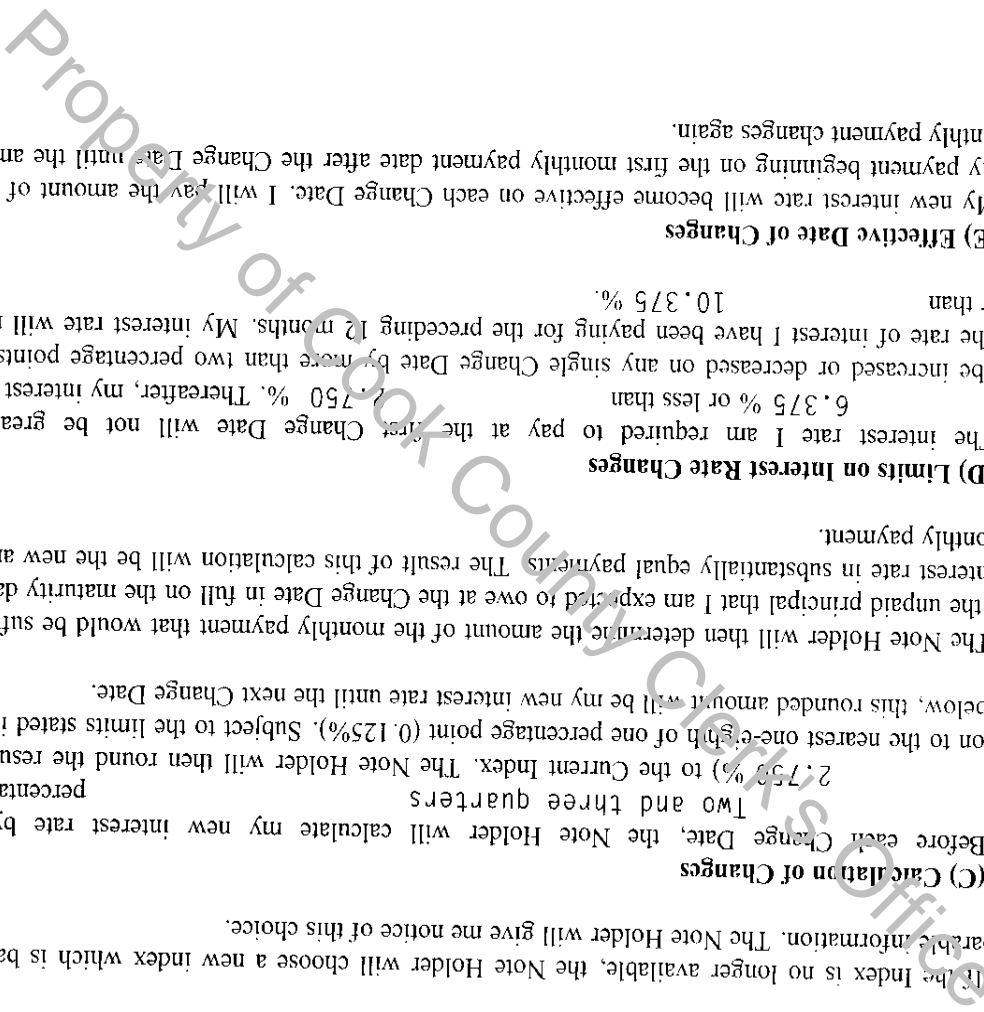 If the Index is no longer available, the Note Holder will choose a new index which is ba
arable information. The Note Holder will give me notice of this choice.
(C) Calculation of Changes
Before each Change Date, the Note Holder will calculate my new interest rate by
Two and three quarters percenta
2.750 %) to the Current Index. The Note Holder will then round the resu
on to the nearest one-eighth of one percentage point (0.125%). Subject to the limits stated i
below, this rounded amount will be my new interest rate until the next Change Date.
The Note Holder will then determine the amount of the monthly payment that would be suf
the unpaid principal that I am expected to owe at the Change Date in full on the maturity da
nterest rate in substantially equal payments. The result of this calculation will be the new a
onthly payment.
D) Limits on Interest Rate Changes
The interest rate I am required to pay at the first Change Date will not be grea
6.375 % or less than 2.750 %. Thereafter, my interest
be increased or decreased on any single Change Date by more than two percentage points
he rate of interest I have been paying for the preceding 12 months. My interest rate will
r than 10.375 %.
E) Effective Date of Changes
My new interest rate will become effective on each Change Date. I will pay the amount of
y payment beginning on the first monthly payment date after the Change Date until the am
nthly payment changes again.
Property of Cook County Clerk's Office